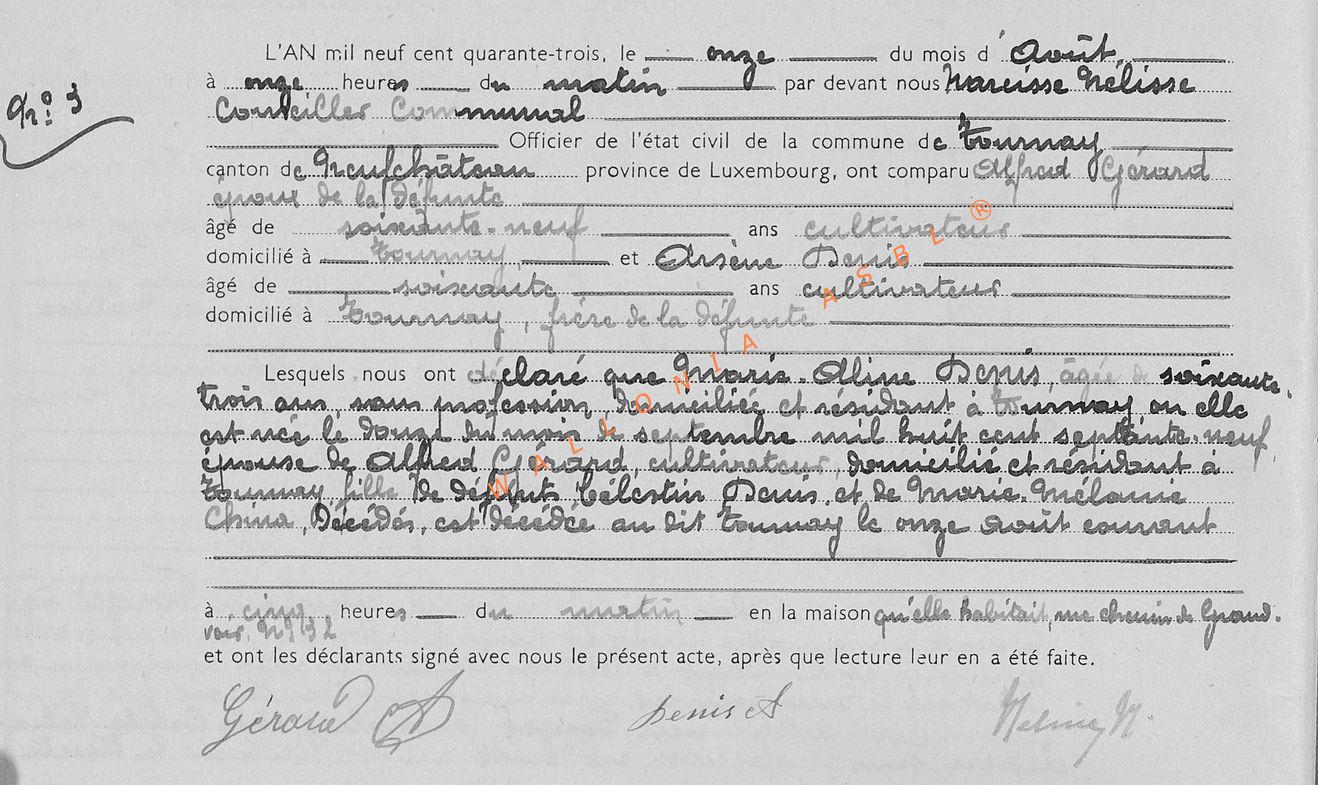 L'AN mil neuf cent quarante-trois, le onze du mois d'Août
à onze heures du matin par devant nous Narcisse Nélisse
N° 3
Conseiller Communal
Officier de l'état civil de la commune de Tournay
canton de Neufchâteau province de Luxembourg, ont comparu Alfred Gérard
époux de la défunte
âgé de soixante-neuf ans cultivateur
domicilié à Tournay, et Arsène Denis
âgé de soixante ans cultivateur
domicilié à Tournay, frère de la défunte
Lesquels nous ont déclaré que Marie-Aline Denis, âgée de soixante-
trois ans, sans profession, domiciliée et résidant à Tournay ou elle
est née le douze du mois de septembre mil huit cent septante-neuf
épouse de Alfred Gérard, cultivateur, domicilié et résidant à
Tournay, fille de défunts Célestin Denis, et de Marie-Mélanie
China, décédés, est décédée au dit Tournay le onze août courant
à cinq heures du matin en la maison qu'elle habitait, rue chemin de Grand-
voir, N° 32
et ont les déclarants signé avec nous le présent acte, après que lecture leur en a été faite.
Gérard A Denis A N.
WALLONIA ASBL ®